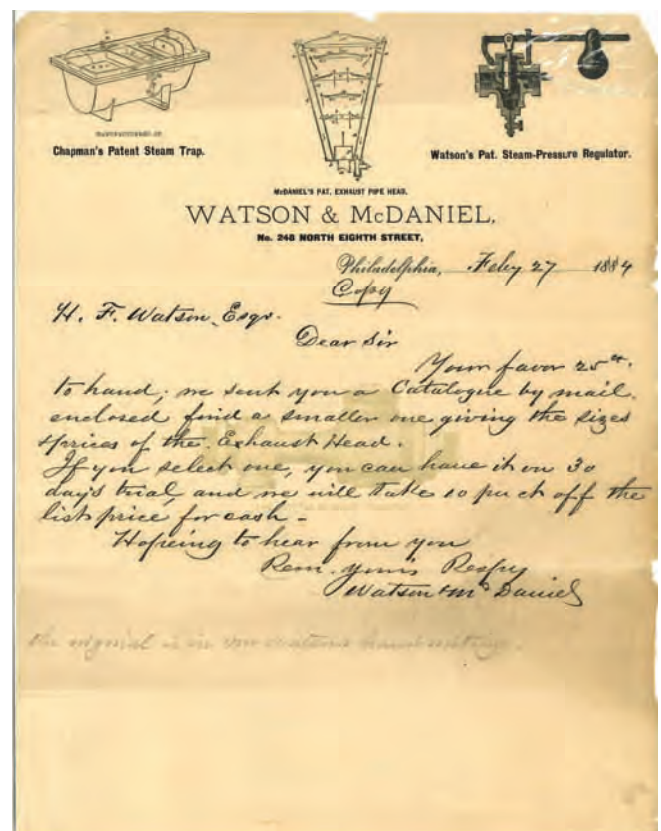 MANUFACTURERS OF
Chapman's Patent Steam Trap.
Watson's Pat. Steam-Pressure Regulator.
McDANIEL'S PAT. EXHAUST PIPE HEAD.
WATSON & McDANIEL,
No. 248 NORTH EIGHTH STREET,
Philadelphia, Feby 27 1884
Copy
H. F. Watson, Esqr.
Dear Sir
Your favor 25th.
to hand; we sent you a Catalogue by mail.
enclosed find a smaller one giving the sizes
& prices of the Exhaust Head.
If you select one, you can have it on 30
days trial, and we will take 10 pr ct off the
list price for cash -
Hopeing to hear from you
Rem. yours Respy
Watson & McDaniel
the original is in Mr Watsons hand writing.